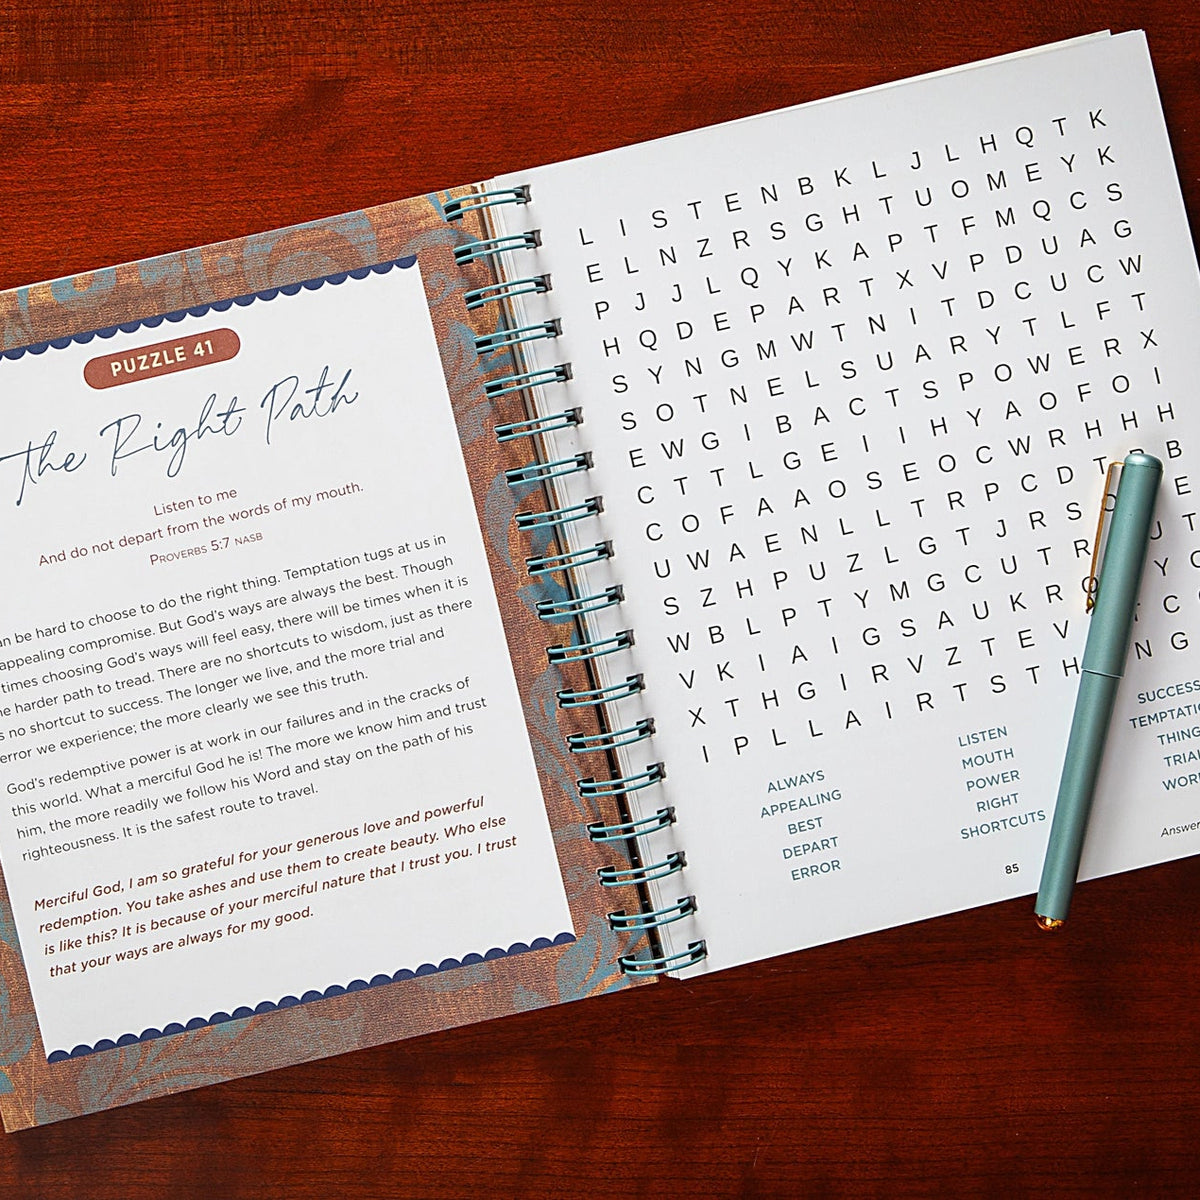 PUZZLE 41
the Right Path
Listen to me
And do not depart from the words of my mouth.
PROVERBS 5:7 NASB
be hard to choose to do the right thing. Temptation tugs at us in
appealing compromise. But God's ways are always the best. Though
times choosing God's ways will feel easy, there will be times when it is
harder path to tread. There are no shortcuts to wisdom, just as there
no shortcut to success. The longer we live, and the more trial and
error we experience; the more clearly we see this truth.
God's redemptive power is at work in our failures and in the cracks of
this world. What a merciful God he is! The more we know him and trust
him, the more readily we follow his Word and stay on the path of his
righteousness. It is the safest route to travel.
Merciful God, I am so grateful for your generous love and powerful
redemption. You take ashes and use them to create beauty. Who else
is like this? It is because of your merciful nature that I trust you. I trust
that your ways are always for my good.
L I S T E N B K L J L H Q T K
E L N Z R S G H T U O M E Y K
P J J L Q Y K A P T F M Q C S
H Q D E P A R T X V P D U A G
S Y N G M W T N I T D C U C W
S O T N E L S U A R Y T L F T
E W G I B A C T S P O W E R X
C T T L G E I I H Y A O F O I
C O F A A O S E O C W R H H H
U W A E N L L T R P C D T B
S Z H P U Z L G T J R S E
W B L P T Y M G C U T R T
V K I A I G S A U K R Y
X T H G I R V Z T E V C
I P L L A I R T S T H N G
ALWAYS
APPEALING
BEST
DEPART
ERROR
LISTEN
MOUTH
POWER
RIGHT
SHORTCUTS
SUCCESS
85